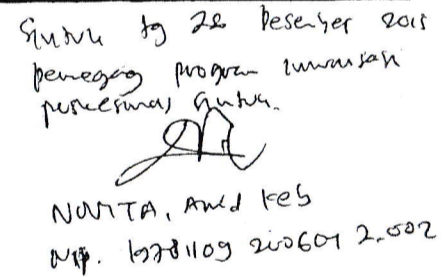 Guntur tg 28 Desember 2015
pemegang program imunisasi
puskesmas Guntur.
NOVITA, Amd Keb
Nip. 19781109 200604 2.002